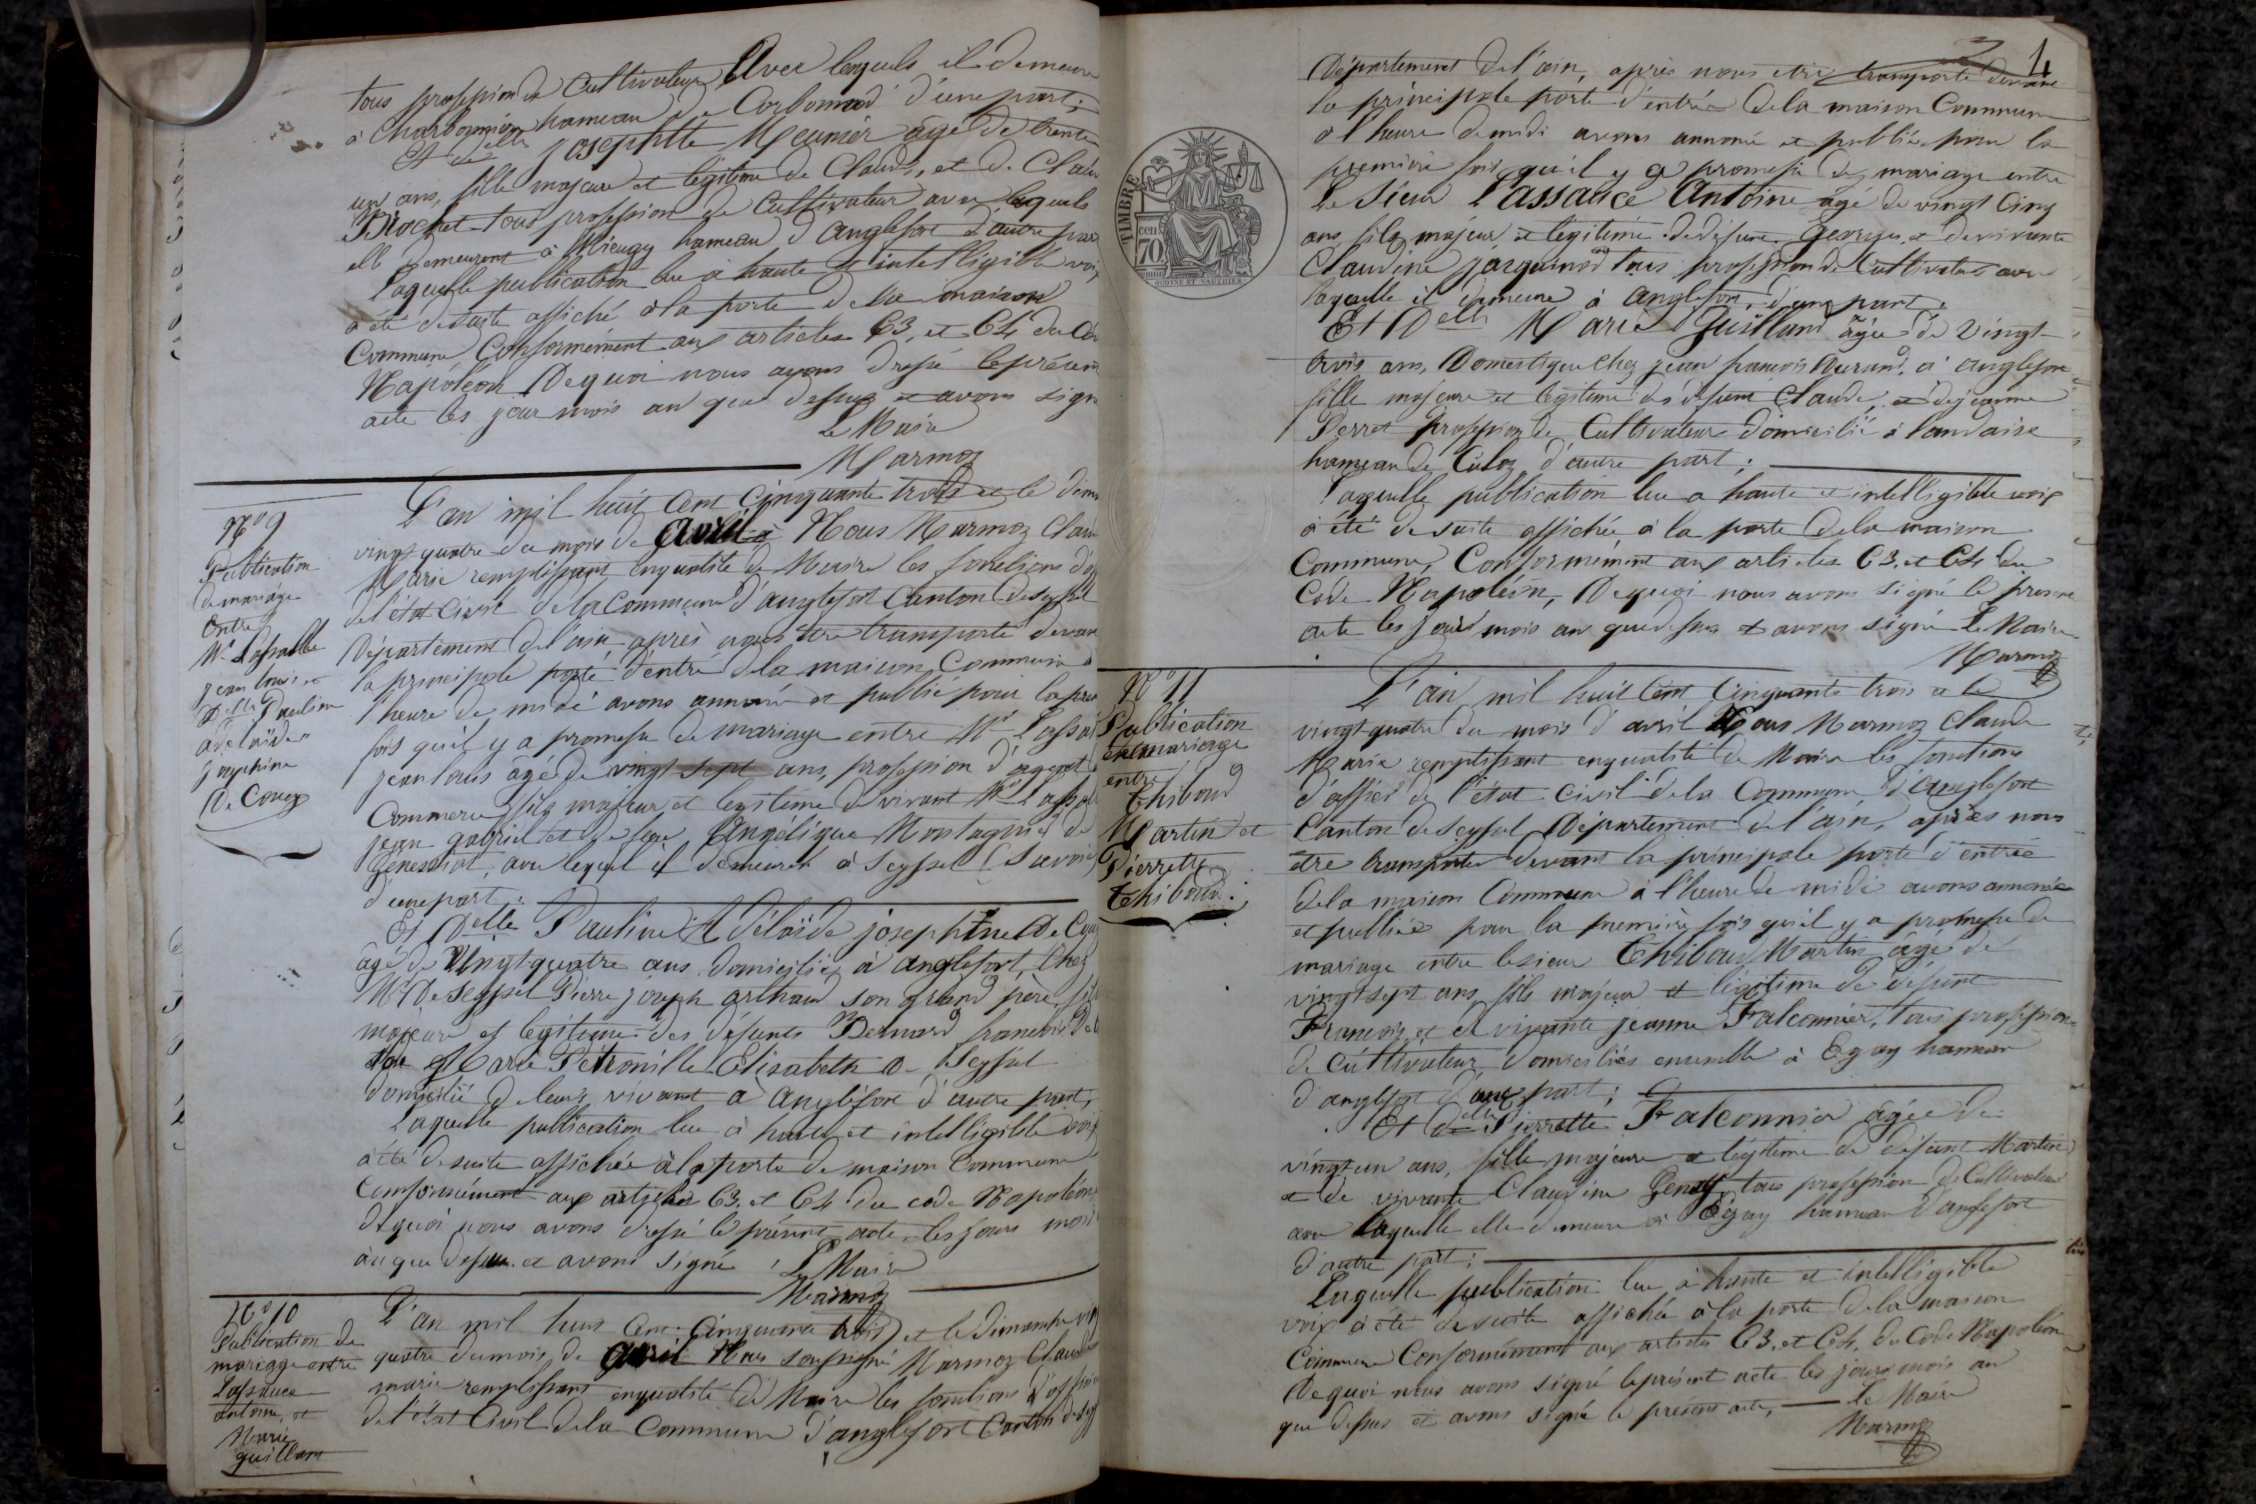 tous profession de Cultivateur Avec lesquels il demeure
à Charbonnière hameau de Corbonod d'une part;
Et delle Josephtte Meunier âgé de trente
un ans, fille majeure et légitime de Claude, et de Claud
Brochet tous profession de Cultivateur avec lesquels
elle demeurent à hameau d'anglefort d'autre part
Laquelle publication lue à haute et intelligible voix
a été de suite affiché à la porte de la maison
Commune Conformément aux articles 63. et 64 du Co
Napoléon De quoi nous avons dressé le présent
acte les jour mois an que dessus et avons signé
Le Maire
Marmoz
N° 9
Publication
de mariage
Entre
Mr Lassalle
jean louis et
Delle Pauline
adélaïde
josephine
De Coucy
L'an mil huit Cent Cinquante trois et le dima
vingt quatre du mois de Avril à Nous Marmoz Clau
Marie remplissant enqualité de Maire les fonctions d'of
de l'état Civil de la Commune d'anglefort Canton de seyssel
Département de l'ain après nous être transporté devan
la principale porte d'entré de la maison Commune à
l'heure de midi avons annoncé et publié pour la pre
fois qu'il y a promesse de mariage entre Mr Lassal
jean louis âgé de vingt sept ans, profession d'agent de
Commerce fils majeur et légitime de vivant Mr Lassal
jean gabriel et de feue Angélique Montagnie de
Genessiat, avec lequel il demeurent à Seyssel (Savoie)
d'une part;
Et Delle Pauline Adélaïde joséphine De Cou
âgé de Vingt quatre ans domiciliée à anglefort, Chez
Mr De Seyssel Pierre joseph arthaud son grand père, fil
majeure et légitime des défunts Bernard francois De
et Marie Pétronille Elisabeth de Seyssel
domicilié de leurs vivant à anglefort d'autre part,
Laquelle publication lue à haute et intelligible voix
a été de suite affichée à la porte de maison Commune
Conformément aux articles 63. et 64 du code Napoléon
De quoi nous avons dressé le présent acte les jours mois
an que dessus. et avons signé Le Maire
Marmoz
N° 10
Publication de
mariage entre
Lassauce
antoine, et
Marie
guilland
L'an mil huit Cent Cinquante trois et le dimanche vin
quatre du mois de avril Nous soussigné Marmoz Claude
marie remplissant enqualité de Maire les fonctions d'offici
de l'état Civil de la Commune d'anglefort Canton de sey
4
Département de l'ain, après nous etre transporté devant
la principale porte d'entrée de la maison Commune
à l'heure de midi avons annoncé et publié pour la
première fois qu'il y a promesse de mariage entre
Le Sieur Lassauce Antoine âgé de vingt Cinq
ans fils majeur et légitime de défunt Georges, et de vivante
Claudine Jarquinod tous profession de Cultivateur avec
laquelle il demeure à anglefort, d'une part.
Et Delle Marie Guilland âgée de Vingt
trois ans, Domestique Chez jean francois Durand. à anglefort
fille majeure et légitime de défunt Claude, et de jeanne
Perret profession de Cultivateur domicilié à landaise
hameau de Culoz, d'autre part;
Laquelle publication lue a haute et intelligible voix
a été de suite affichée à la porte de la maison
Commune, Conformément aux articles 63. et 64 du
Code Napoléon, De quoi nous avons signé le présent
acte les jours mois an que dessus et avons signé Le Maire
Marmoz
TIMBRE
70
N° 11
Publication
de mariage
entre
Thiboud
Martin et
Pierrette
Thiboud.
L'an mil huit Cent Cinquante trois et le
vingt quatre du mois d'avril Nous Marmoz Claude
Marie remplissant enqualité de Maire les fonctions
d'officier de l'état civil de la Commune d'Anglefort
Canton de Seyssel Département de l'ain, après nous
etre transporté devant la principale porte d'entrée
de la maison Commune à l'heure de midi avons annoncée
et publiée pour la première fois qu'il y a promesse de
mariage entre le sieur Thiboud Martin âgé de
vingt sept ans fils majeur et légitime de défunt
Francois, et de vivante jeanne Falconnier, tous profession
de Cultivateur, domiciliés ensemble à Egay hameau
d'anglefort d'une part;
Et delle Pierrette Falconnier âgée de
vingt un ans, fille majeure et légitime de défunt Martin
et de vivante Claudine tous profession de Cultivateur
avec laquelle elle demeure à Egay hameau d'anglefort
d'autre part;
Laquelle publication lue à haute et intelligible
voix a été de suite affichée à la porte de la maison
Commune Conformément aux articles 63. et 64. du Code Napoléon
De quoi nous avons signé le présent acte les jours mois an
que dessus et avons signé le présent acte, Le Maire
Marmoz